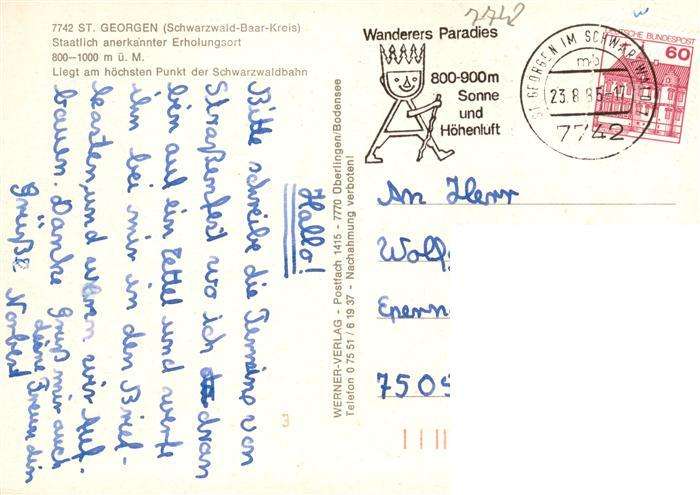 7742 ST. GEORGEN (Schwarzwald-Baar-Kreis)
Staatlich anerkannter Erholungsort
800—1000 m ü. M.
Liegt am höchsten Punkt der Schwarzwaldbahn
Hallo!
Bitte schreibe die Termine von
Straßenfest wo ich dran
bin auf ein Zettel und werfe
ihn bei mir in den Brief-
kasten, und wenn wir Auf-
bauen. Danke Gruß mir auch
deine Freundin
Grüße Norbert
WERNER-VERLAG - Postfach 1415 - 7770 Überlingen/Bodensee
Telefon 0 75 51 / 6 19 37 - Nachahmung verboten!
3
7742
Wanderers Paradies
800-900m
Sonne
und
Höhenluft
ST. GEORGEN IM SCHWARZWALD
mb
23.8.85-17
7742
DEUTSCHE BUNDESPOST
60
An Herr
Wolf
Epern
7505